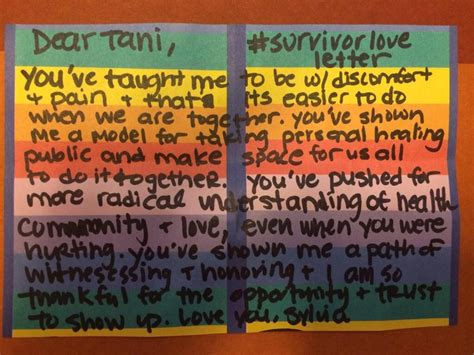 Dear Tani, #survivorlove
letter
You've taught me to be w/ discomfort
+ pain + that its easier to do
when we are together. you've shown
me a model for taking personal healing
public and make space for us all
to do it together. you've pushed for
more radical understanding of health
community + love, even when you were
hurting. you've shown me a path of
witnessing + honoring + I am so
thankful for the opportunity + trust
to show up. Love you, Sylvia